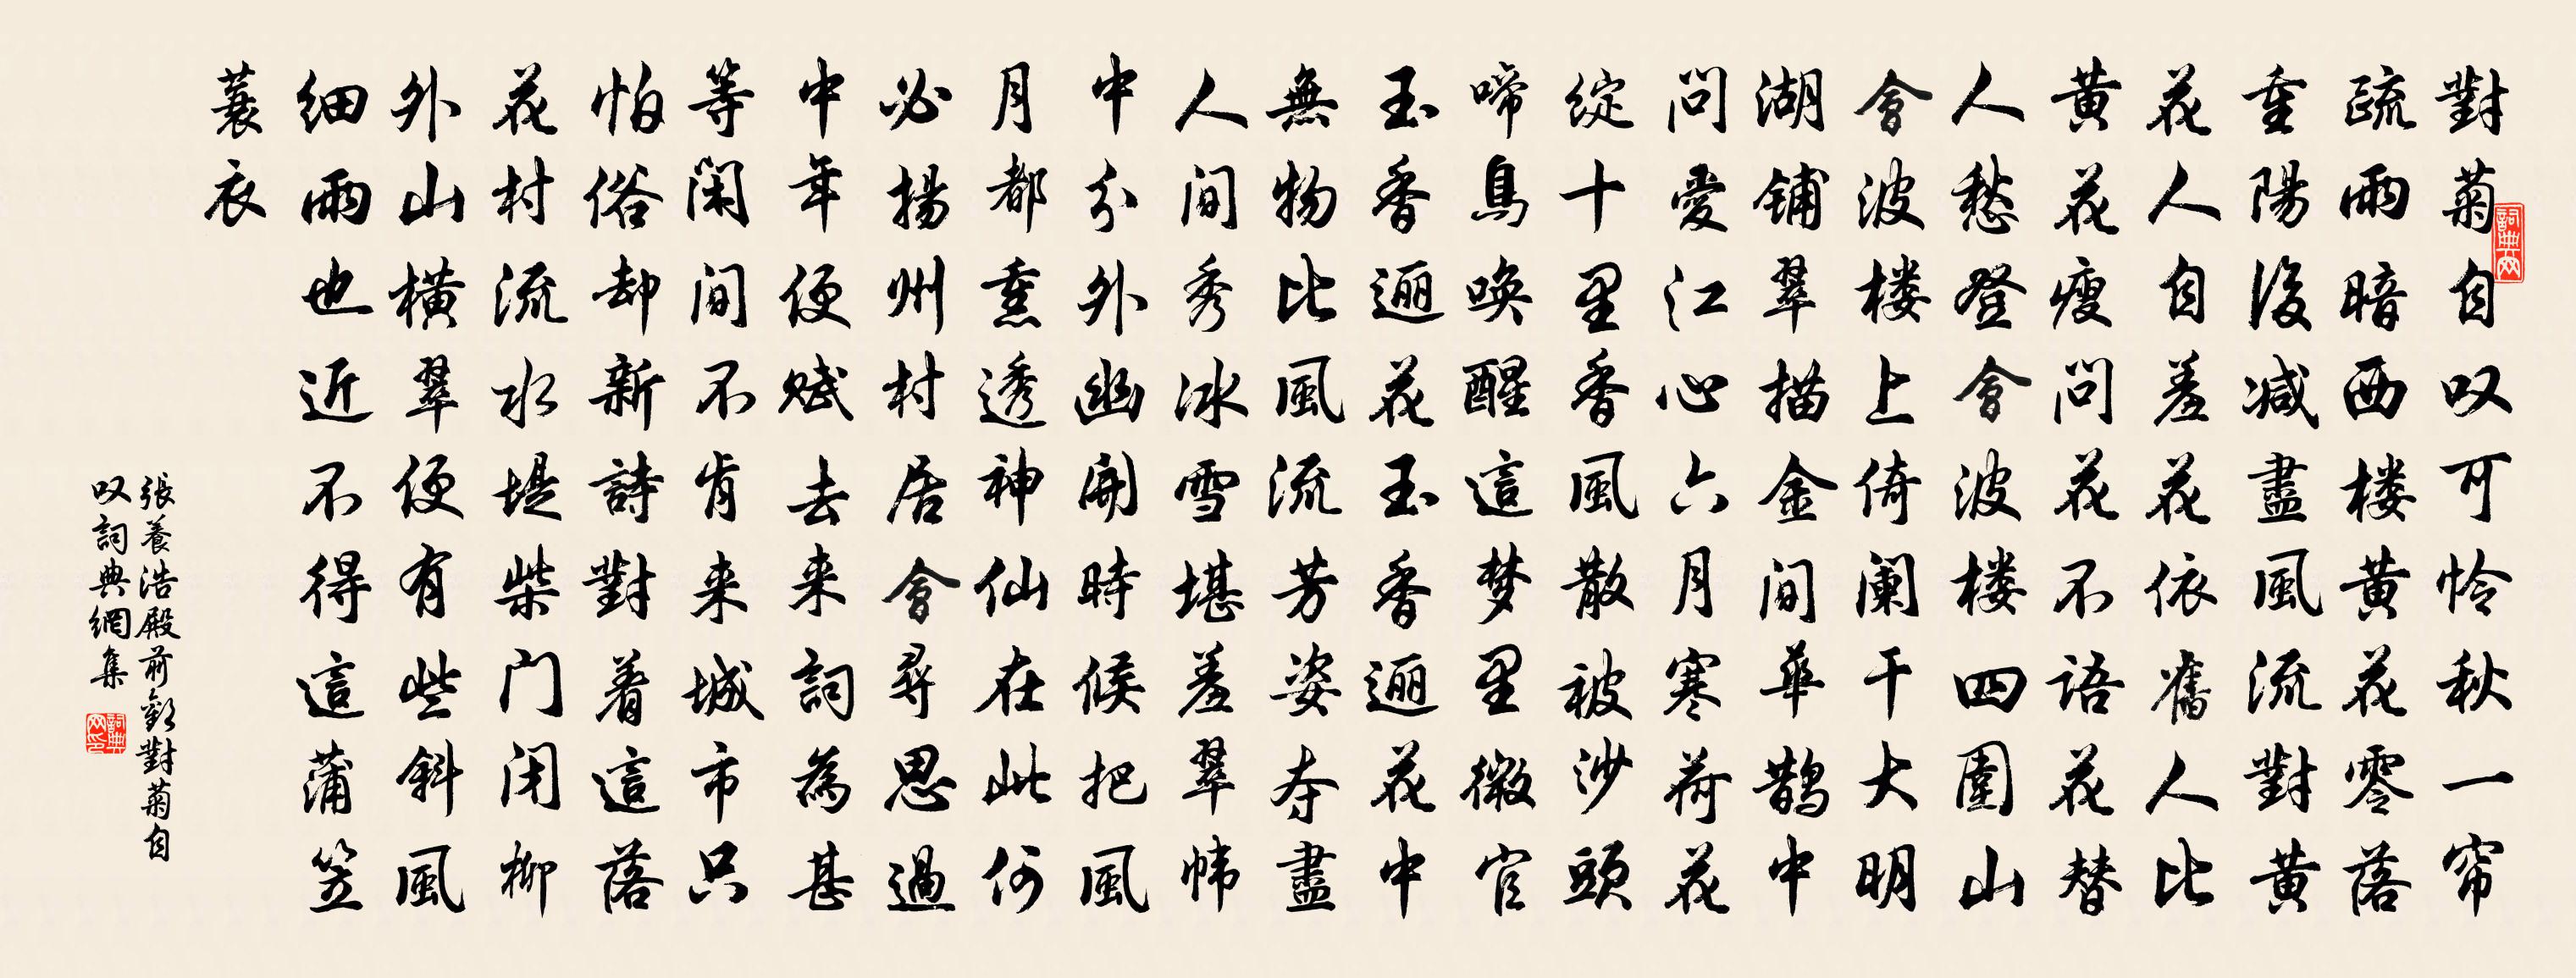 對菊自叹可怜秋一帘
疏雨暗西楼黄花零落
重陽後减盡風流對黄
花人自羞花依舊人比
黄花瘦問花不語花替
人愁登會波楼四圍山
會波楼上倚阑干大明
湖铺翠描金間華鹊中
問愛江心六月寒荷花
绽十里香風散被沙頭
啼鳥唤醒這梦里微官
玉香逦花玉香逦花中
無物比風流芳姿夺盡
人間秀冰雪堪羞翠帏
中分外幽開時候把風
月都熏透神仙在此何
必揚州村居會尋思過
中年便赋去来詞為甚
等閑間不肯来城市只
怕俗却新詩對着這落
花村流水堤柴门闭柳
外山横翠便有些斜風
细雨也近不得這蒲笠
蓑衣
張養浩殿前歡對菊自
叹詞典網集
詞典网
詞典网印